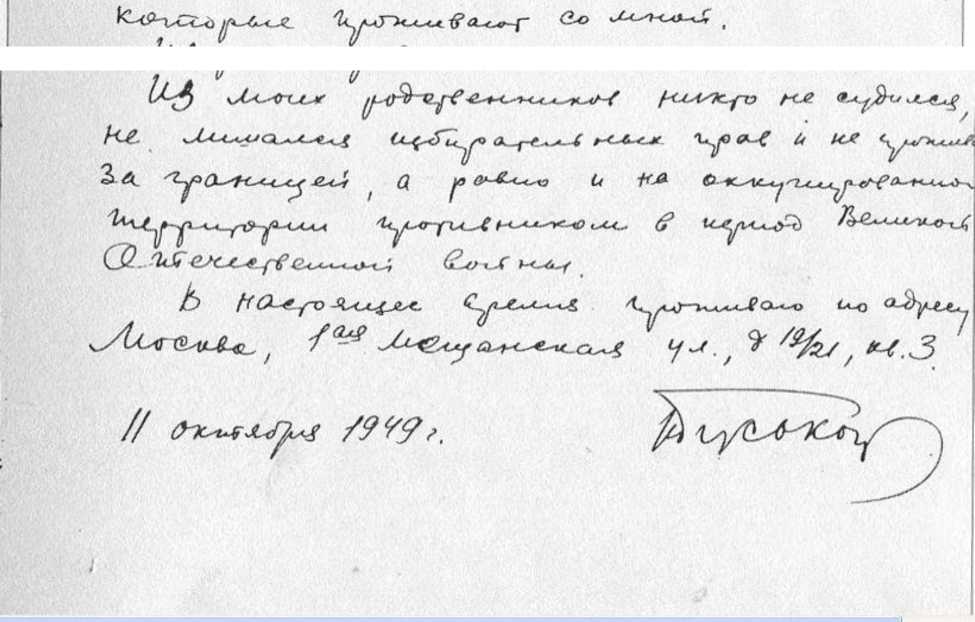 которые проживают со мной.
Из моих родственников никто не судился,
не лишался избирательных прав и не прожив
За границей, а равно и на оккупированно
территории противником в период Великой
Отечественной войны.
В настоящее время проживаю по адресу
Москва, 1ая Мещанская ул., д 19/21, кв. 3.
11 октября 1949 г.